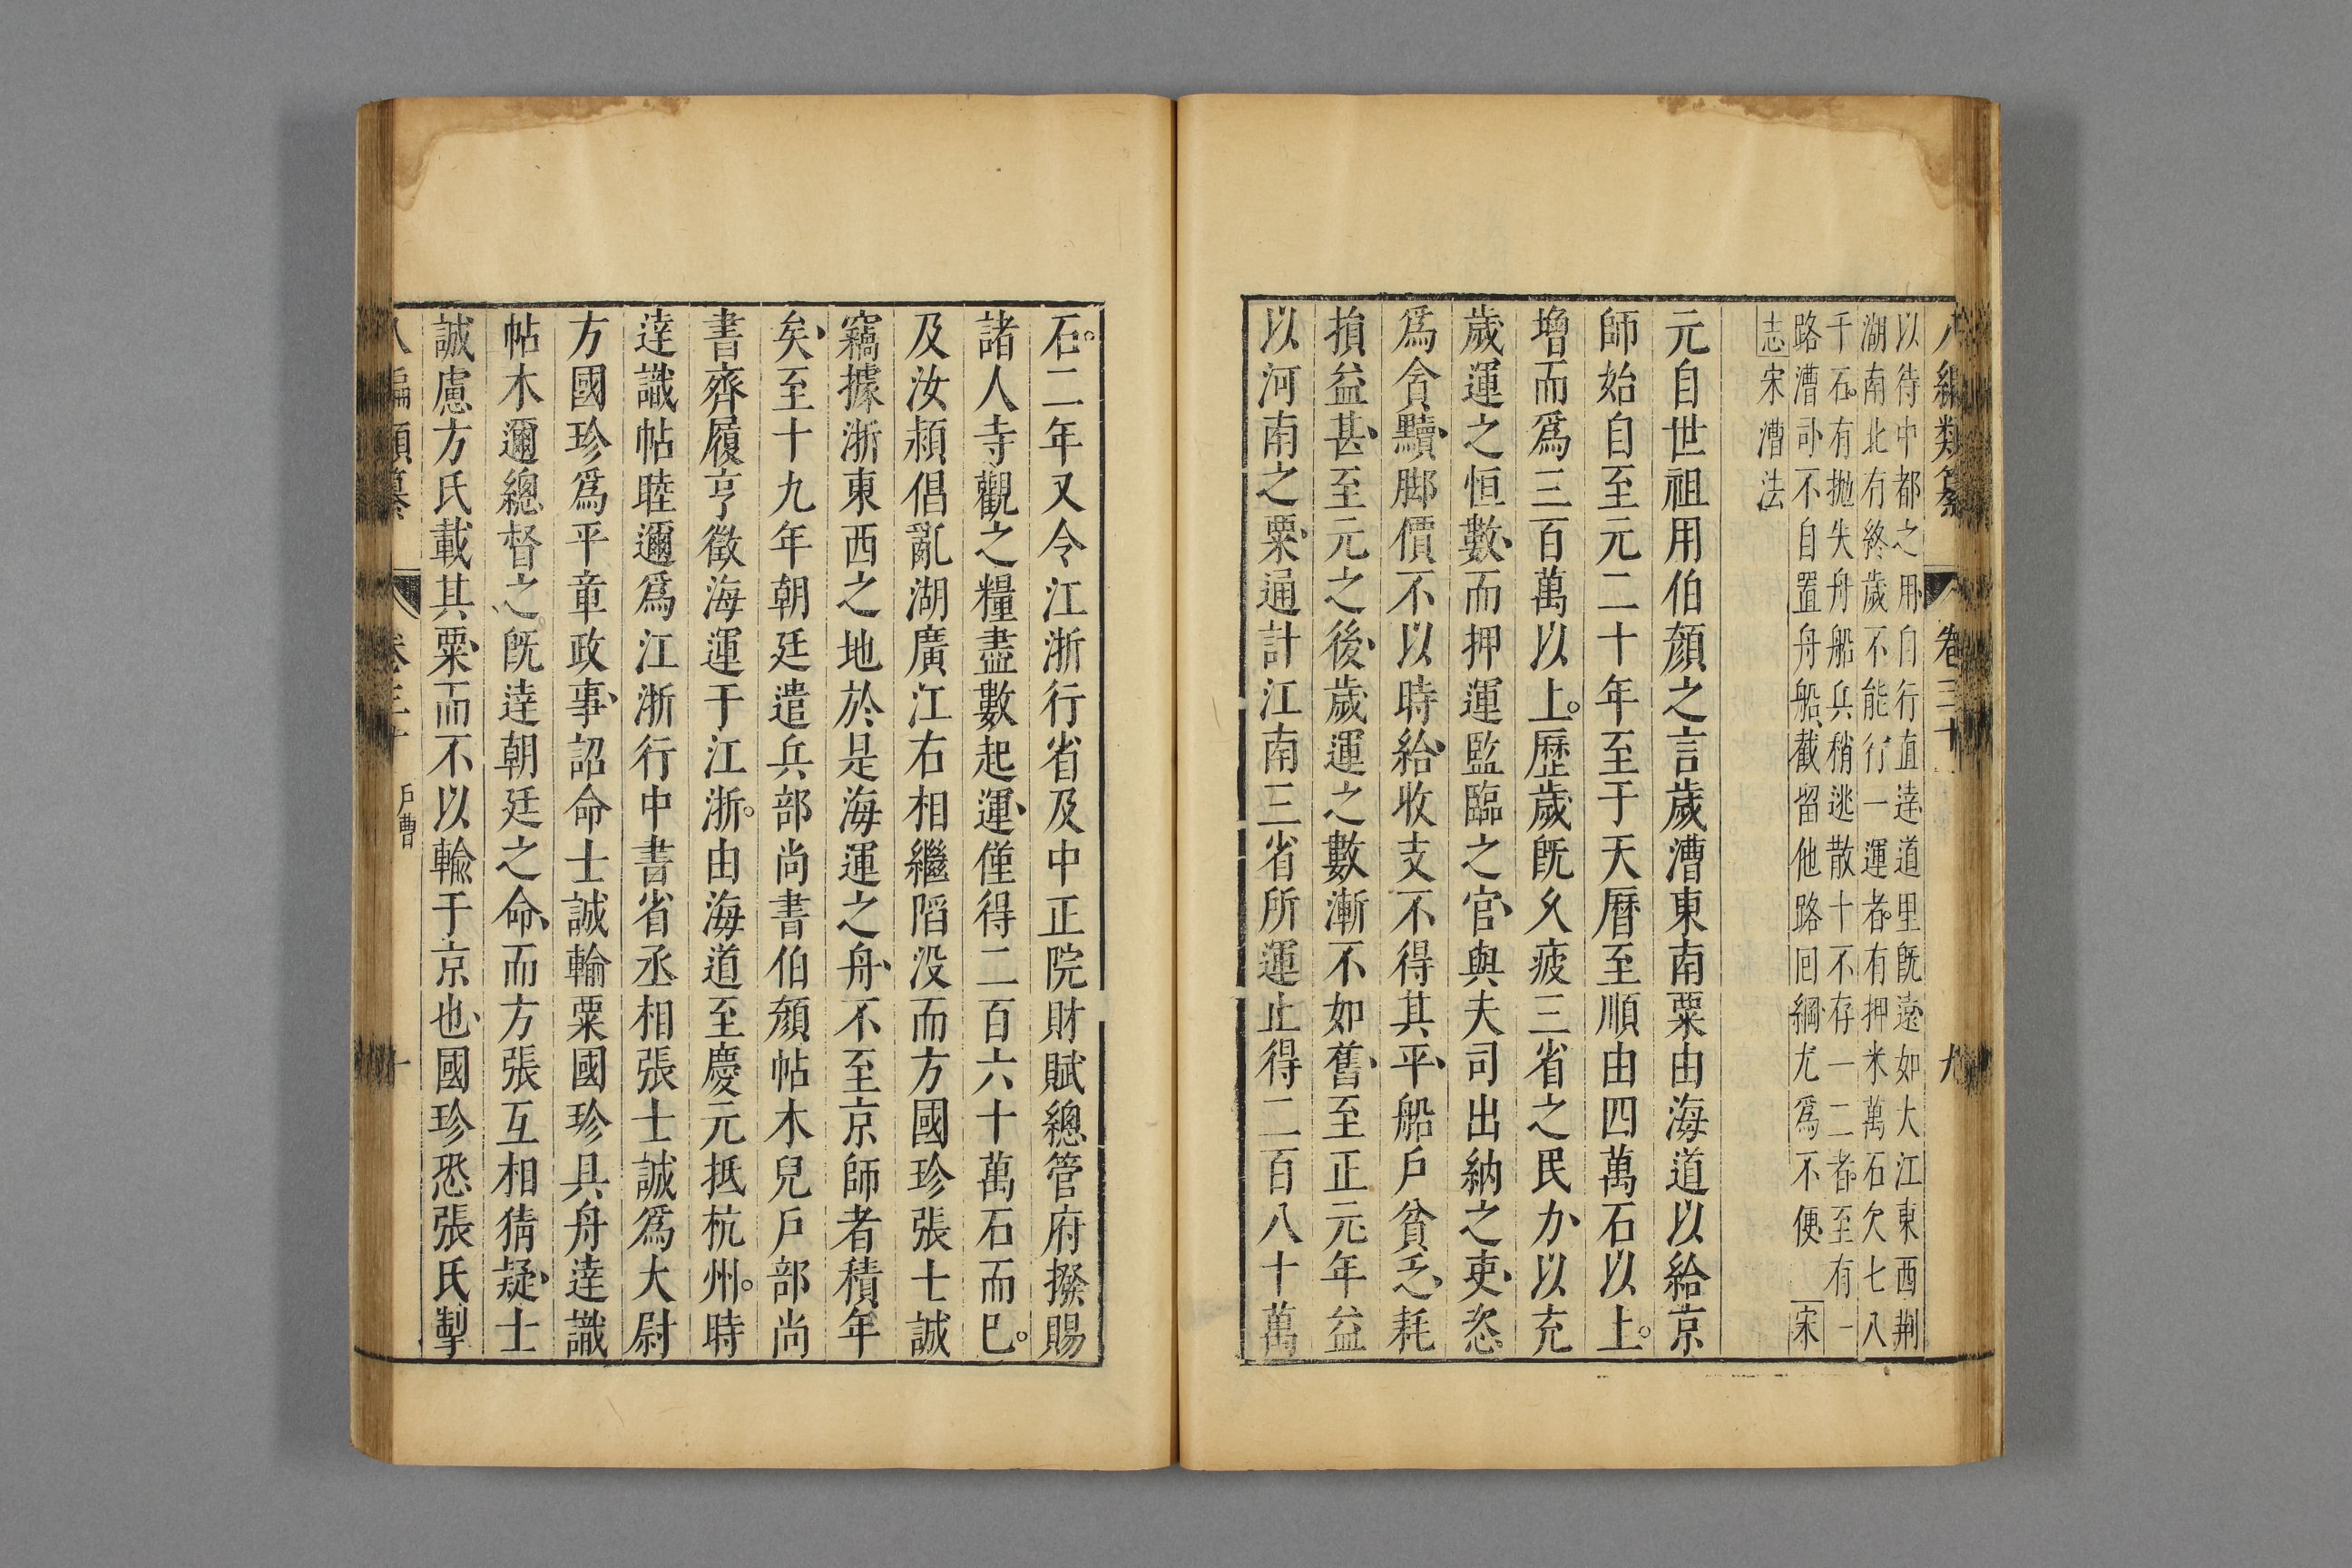 八編類纂 卷三十 九
以待中都之用自行直達道里既遠如大江東西荆
湖南北有終歲不能行一運者有押米萬石欠七八
千石有抛失舟船兵稍逃散十不存一二者至有一
路漕司不自置舟船截留他路回綱尤爲不便 宋
志宋漕法
元自世祖用伯顏之言歲漕東南粟由海道以給京
師始自至元二十年至于天曆至順由四萬石以上。
增而爲三百萬以上。歷歲既久疲三省之民力以充
歲運之恒數而押運監臨之官與夫司出納之吏恣
爲貪黷脚價不以時給收支不得其平船戶貧乏耗
損益甚至元之後歲運之數漸不如舊至正元年益
以河南之粟通計江南三省所運止得二百八十萬
石。二年又令江浙行省及中正院財賦總管府撥賜
諸人寺觀之糧盡數起運僅得二百六十萬石而已。
及汝潁倡亂湖廣江右相繼陷没而方國珍張士誠
竊據浙東西之地於是海運之舟不至京師者積年
矣至十九年朝廷遣兵部尚書伯顏帖木兒戶部尚
書齊履亨徵海運于江浙。由海道至慶元抵杭州。時
達識帖睦邇爲江浙行中書省丞相張士誠爲大尉
方國珍爲平章政事詔命士誠輸粟國珍具舟達識
帖木邇總督之。既達朝廷之命而方張互相猜疑士
誠慮方氏載其粟而不以輸于京也國珍恐張氏掣
八編類纂 卷三十 戶曹 十